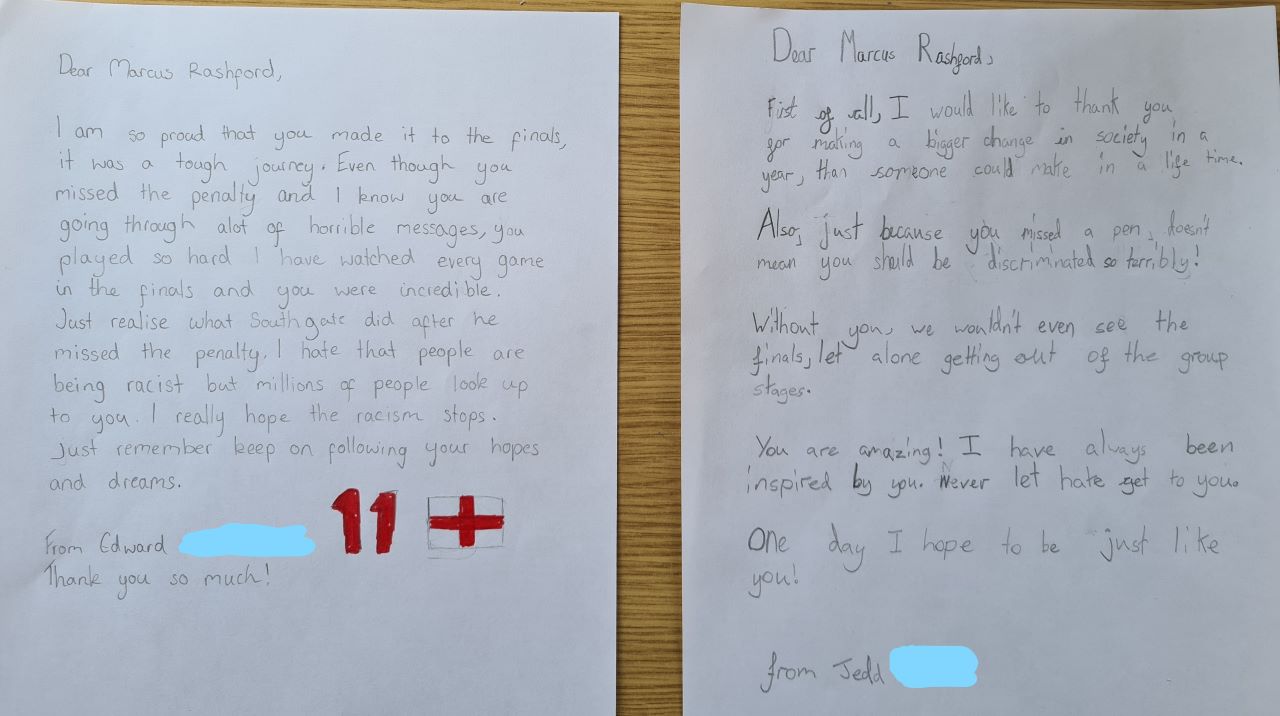 Dear Marcus Rashford,
I am so proud that you made it to the finals,
it was a tough journey. Even though you
missed the penalty and I know you are
going through alot of horrible messages, you
played so hard. I have watched every game
in the final and you were incredible.
Just realise what Southgate did after he
missed the penalty. I hate that people are
being racist but millions of people look up
to you. I really hope the racism stops.
Just remember keep on following your hopes
and dreams.
11
From Edward
Thank you so much!
Dear Marcus Rashford,
Fist of all, I would like to thank you
for making a bigger change in society in a
year than someone could make in a life time.
Also just because you missed a pen, doesn't
mean you should be discriminated so terribly!
Without you, we wouldn't even see the
finals, let alone getting out of the group
stages.
You are amazing! I have always been
inspired by you. Never let hate get to you.
One day I hope to be just like
you!
from Jedd